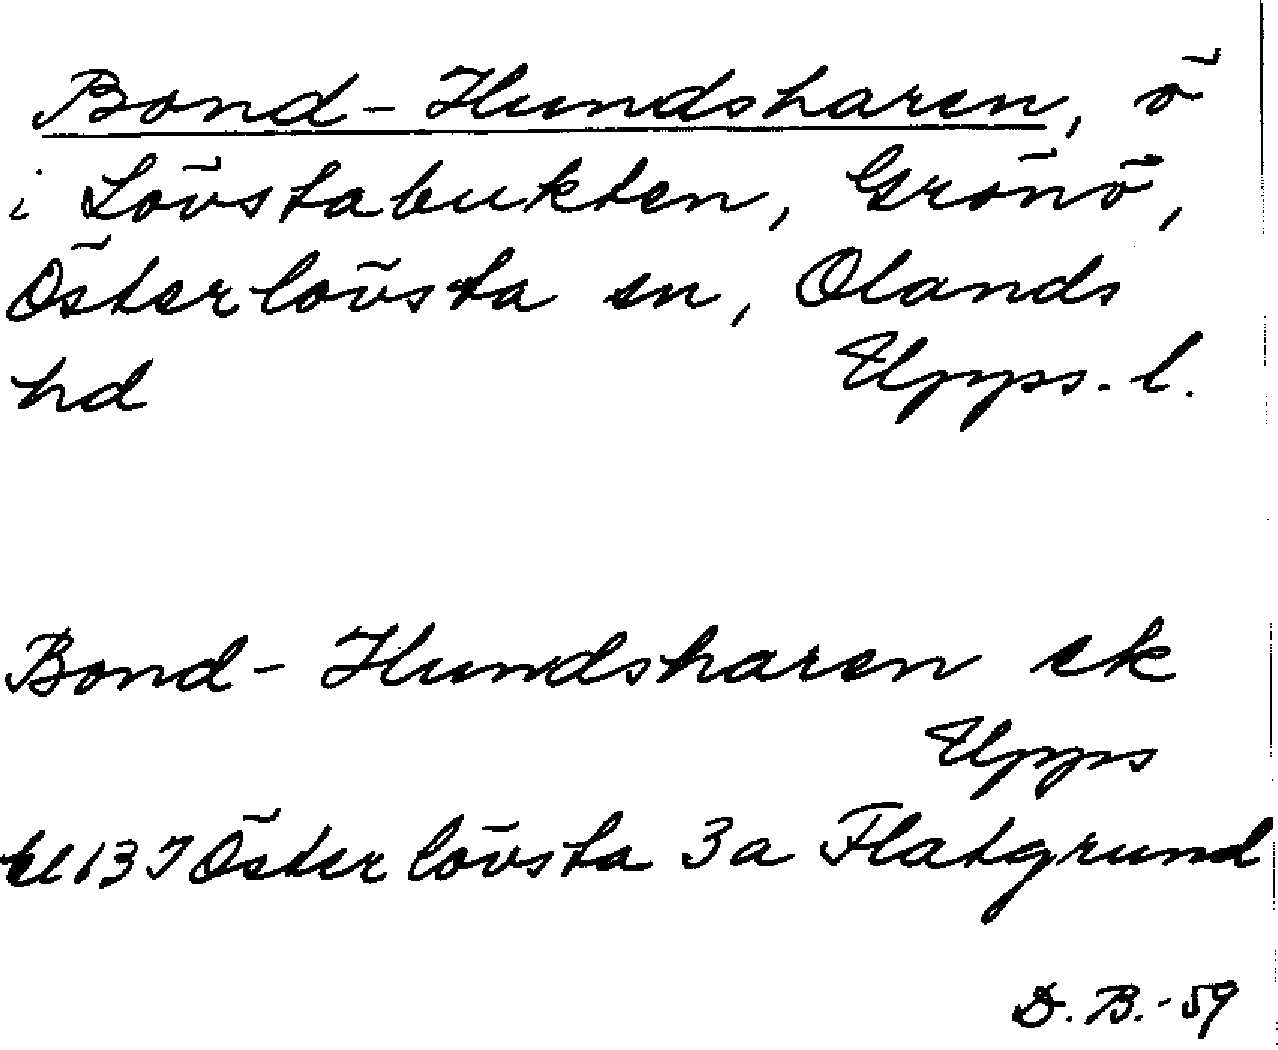 Bond-Hundsharen, ö
i Lövstabukten, Grönö,
Österlövsta sn, Olands
hd Upps. l.
Bond-Hundsharen ek
Upps
13 I Österlövsta 3a Flatgrund
D. B. -59